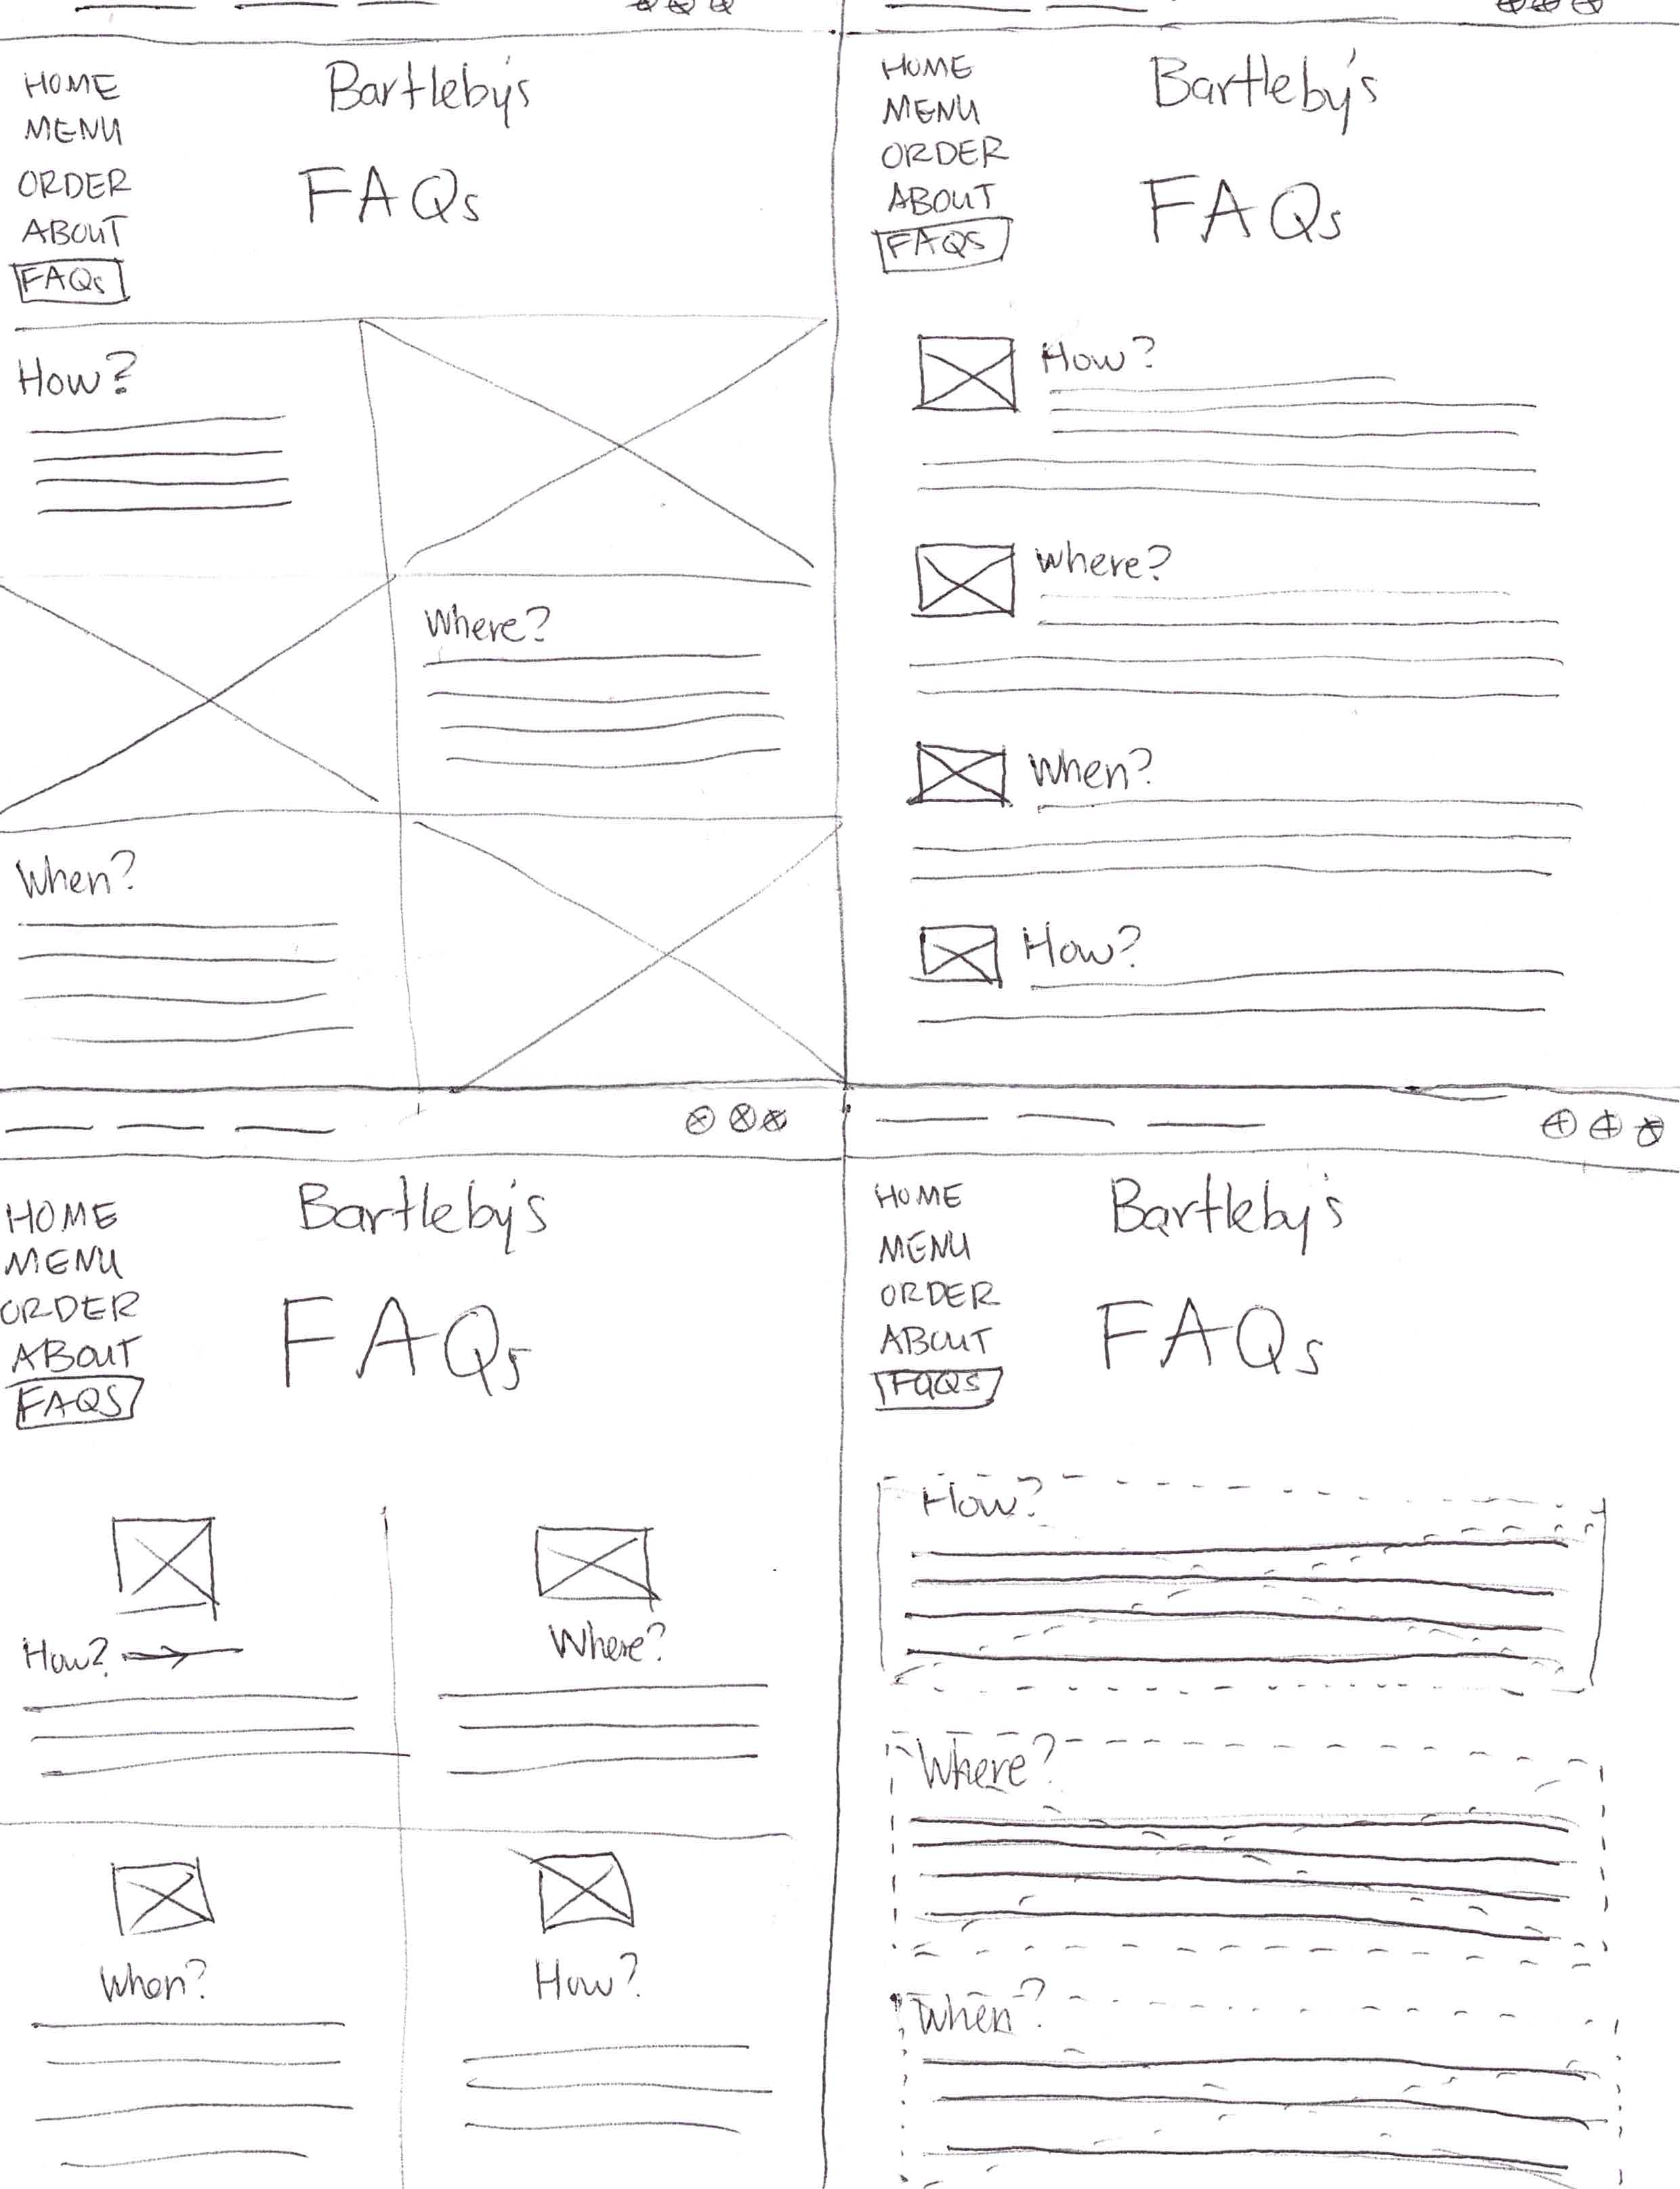 HOME
MENU
ORDER
ABOUT
FAQs
Bartleby's
FAQs
How?
Where?
When?
HOME
MENU
ORDER
ABOUT
FAQS
Bartleby's
FAQs
How?
Where?
When?
How?
HOME
MENU
ORDER
ABOUT
FAQS
Bartleby's
FAQs
How?
Where?
When?
How?
HOME
MENU
ORDER
ABOUT
FAQS
Bartleby's
FAQs
How?
Where?
When?